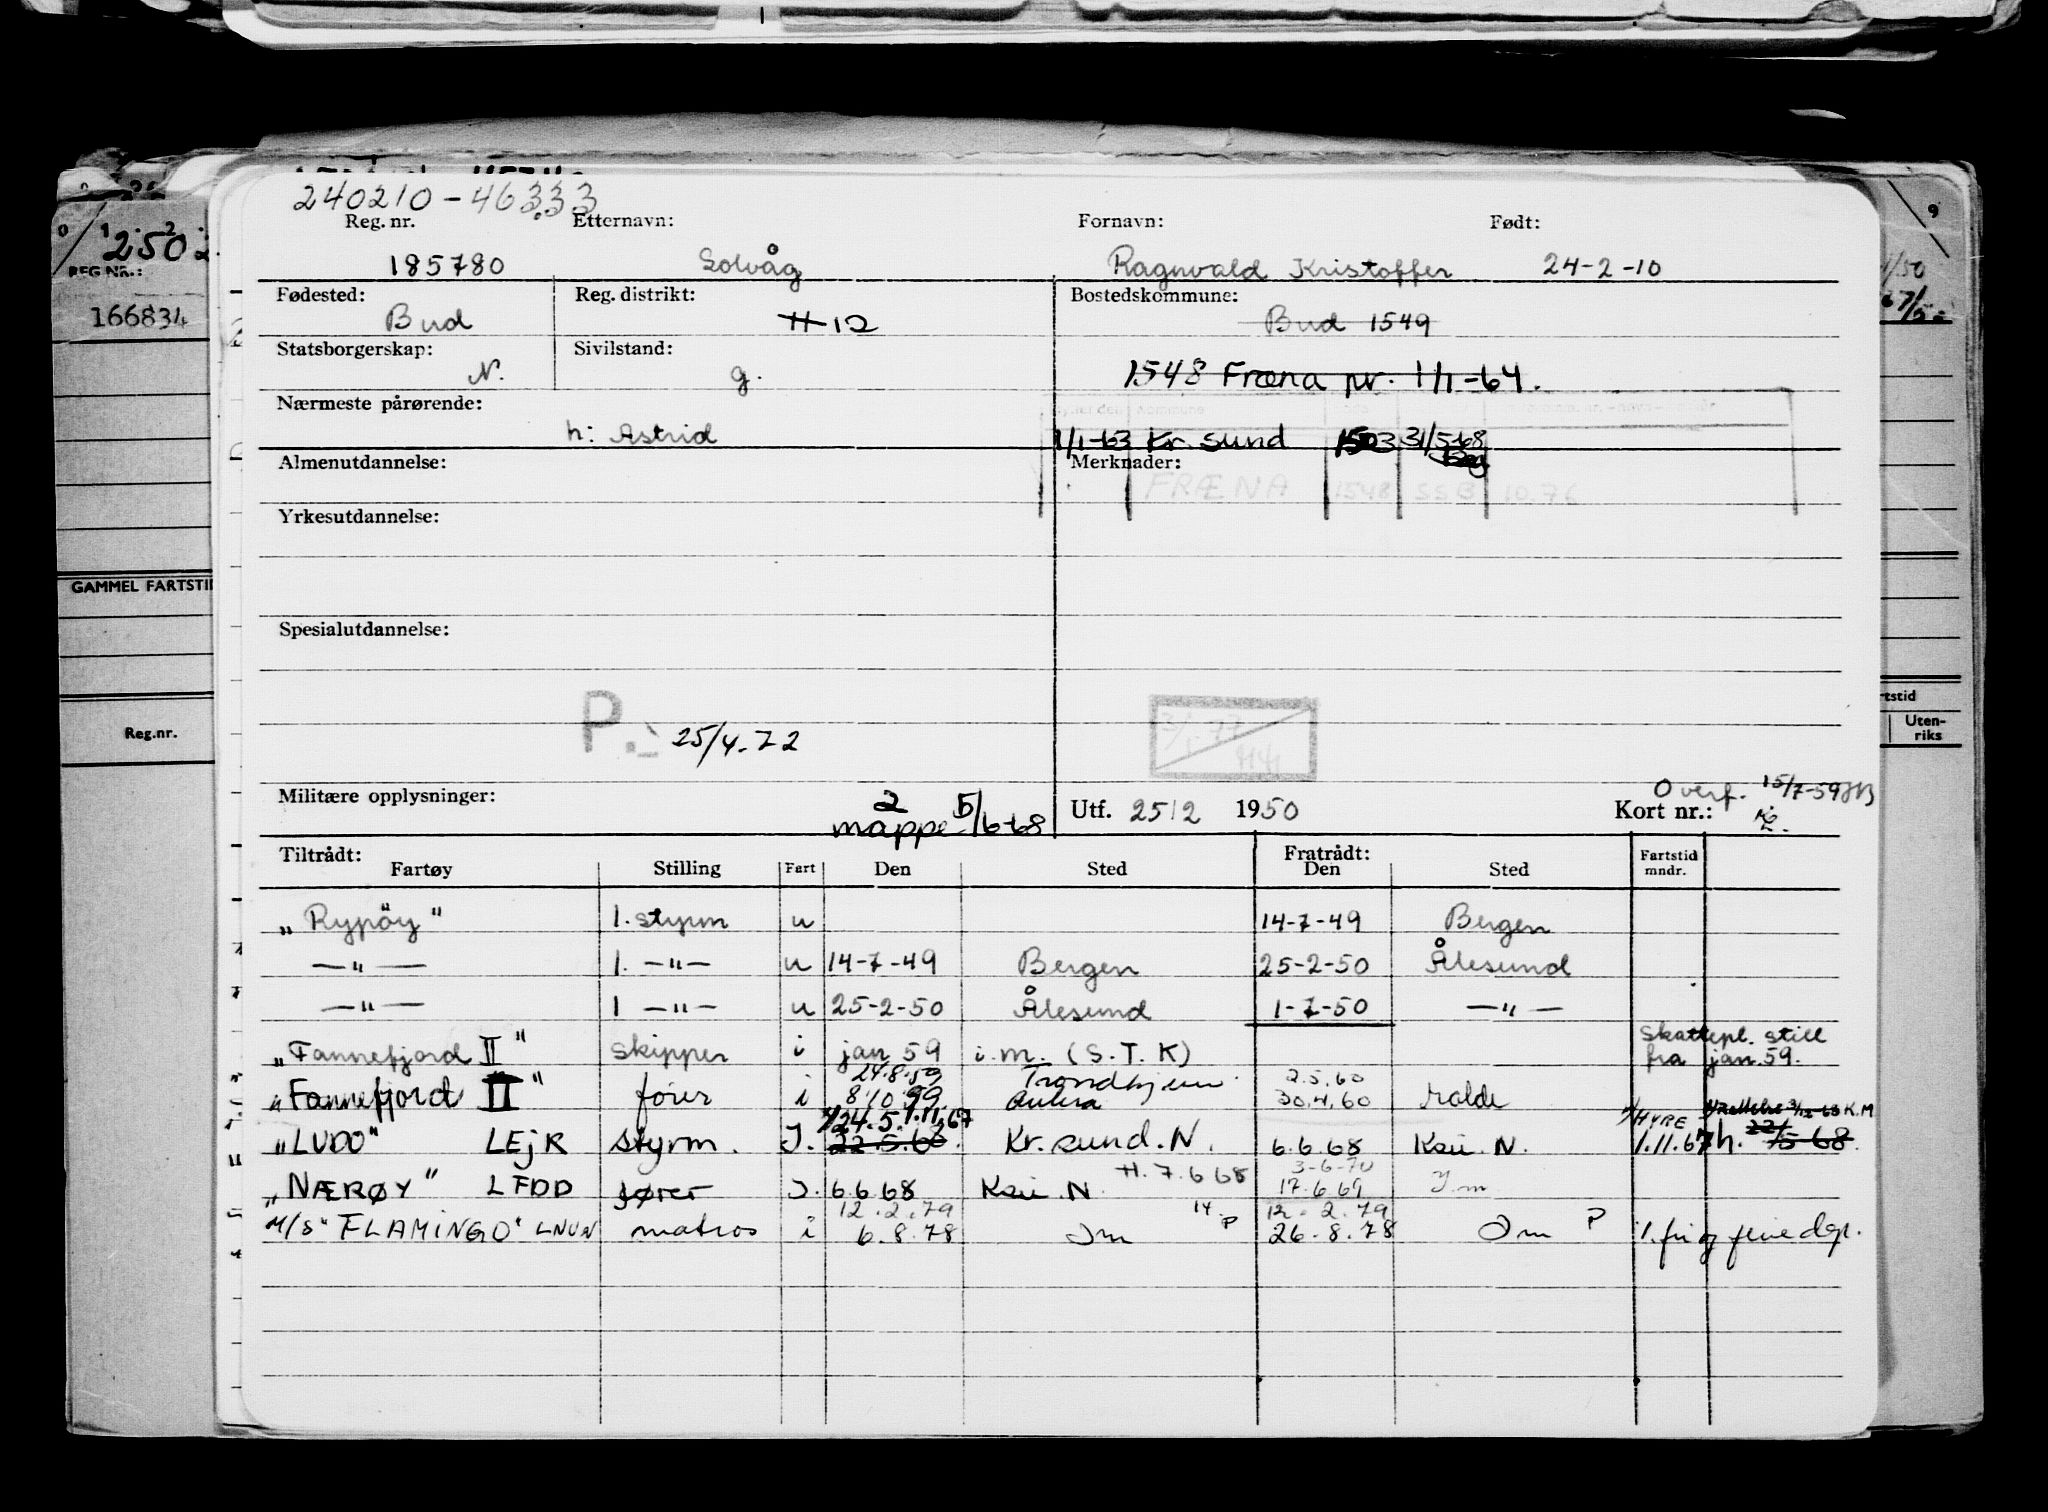 240210-46333
Reg. nr. Etternavn: Fornavn: Født:
185780 Solvåg Ragnvald Kristoffer 24-2-10
Fødested: Reg. distrikt: Bostedskommune:
Bud H 12 Bud 1549
Statsborgerskap: Sivilstand:
N. g. 1548 Fræna pr. 1/1-64.
Nærmeste pårørende:
h: Astrid 1/1-63 Kr. sund 1503 31/5-68
Almenutdannelse: Merknader:
FRÆNA 1548 SSB 10.76
Yrkesutdannelse:
Spesialutdannelse:
P. 25/4-72
3/1 77
Militære opplysninger: 2 mappe 5/6-68 Utf. 25/2 1950 Kort nr.: Overf. 15/7-59
Tiltrådt: Fratrådt: Fartstid mndr.
Fartøy Stilling Fart Den Sted Den Sted
„Rypöy" 1. styrm u 14-7-49 Bergen
—"— 1. —"— u 14-7-49 Bergen 25-2-50 Ålesund
—"— 1 —"— u 25-2-50 Ålesund 1-7-50 —"—
„Fannefjord II" skipper i jan 59 i.m. (S.T.K) Skattepl. still fra jan. 59.
24.8.59 Trondhjem 2.5.60
„Fannefjord II" fører i 8/10 59 Aukra 30.4.60 Molde
24.5. 1.11.67 HYRE
„LUDO" LEJR styrm. I. 22.5.68. Kr.sund.N. 6.6.68 Ksu. N. 1.11.67 h. 22/5-68.
H. 7.6 68 3-6-70
„NÆRØY" LFDD fører I. 6.6.68 Ksu. N. 17.6.69 I.m
12.2.79 14. P 12.2.79 P
M/S "FLAMINGO" LNUN matros i 6.8.78 Im 26.8.78 Im 1. fri og ferie dgr.
250
REG NR.:
166834
GAMMEL FARTSTI
Reg.nr.
9
1/50
rtstid
Uten-
riks